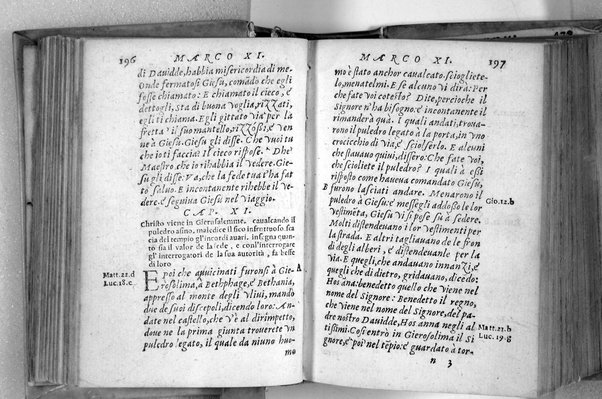 196
MARCO XI.
di Dauidde, habbia misericordia di me.
Onde fermatosi Giesu, comãdò che egli
fosse chiamato: E chiamato il cieco, é
dettogli, sta di buona voglia, rizzati,
egli ti chiama. Egli gittato via per la
fretta il suo mantello, rizzòssi, é ven
ne à Giesu. Giesu gli disse. Che vuoi tu
che io ti faccia? Il cieco rispose. Dhe
Maestro che io rihabbia il vedere. Gie-
su gli disse: Va, che la fede tua t'ha fat
to saluo. E incontanente rihebbe il ve-
dere. é seguiua Giesu nel viaggio.
CAP. XI.
Christo viene in Gierosalemme. caualcando il
puledro asino, maledice il fico infruttuoso scac
cia del tempio gl'incordi auari. insegna quan-
to sia il valor de la fede, e con l'interrogare
gl'interrogatori de la sua autorità, fa beffe
di loro
Matt. 21. d
Luc. 18. c.
E poi che auuicinati furono à Gie- A
rosolima, à Bethphage, é Bethania,
appresso al monte degli Vliui, mando
due de suoi discepoli, dicendo loro: An-
date nel castello, che v'è al dirimpetto,
doue ne la prima giunta trouerete vn
puledro legato, il quale da niuno huo=
mo
MARCO XI.
197
mo é stato anchor caualcato. sciogliete-
lo, menatelmi. E se alcuno vi dirà: Per
che fate voi cotesto? Dite, percioche il
Signore n'ha bisogno: é incontanente il
rimanderà quà. I quali andati, troua-
rono il puledro legato à la porta, in vno
crocicchio di via, é sciolserlo. E alcuni
che stauauo quiui, dissero: Che fate voi,
che sciogliete il puledro? I quali à essi
risposto come haueua comandato Giesu,
B furono lasciati andare. Menarono il Gio. 12. b
puledro à Giesu: é messegli addosso le lor
vestimẽta, Giesu vi si pose sù à sedere.
Molti distendeuano i lor vestimenti per
la strada. E altri tagliauano de le fron
di degli alberi, é distendeuanle per la
via. E quegli, che andauano innanzi, é
quegli che di dietro, gridauano, dicẽdo:
Hosãna: benedetto quello che viene nel
nome del Signore: Benedetto il regno,
che viene nel nome del Signore, del pa-
dre nostro Dauidde, Hosanna negli al Matt. 21. b
tissimi. Cosi entrò in Gierosolima il Si Luc. 19. g
gnore, é poi nel tẽpio: é guardato à tor=
n 3